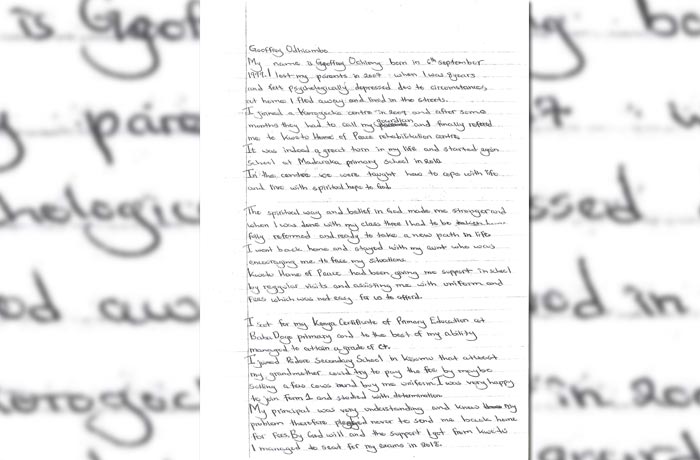 Geoffrey Odhiambo
My name is Geoffrey Ochieng born in 6th september
1999. I lost my parents in 2007 when I was 8years
and felt psychologically depressed due to circumstances,
at home I fled away and lived in the streets.
I joined a Korogocho centre in 2009 and after some
months they had to call my guardian and finally refered
me to Kwetu Home of Peace rehabilitation centre.
It was indeed a great turn in my life and started again
school at Madaraka primary school in 2010
In the centre we were taught how to cope with life
and live with spiritual hope to God.
The spiritual way and belief in God made me stronger and
when I was done with my class three I had to be
fully reformed and ready to take a new path in life
I went back home and stayed with my aunt who was
encouraging me to face my situations.
Kwetu Home of Peace had been giving me support in school
by reggular visits and assisting me with uniform and
fees which was not easy for us to afford.
I sat for my Kenya Certificate of Primary Education at
Baba Dogo primary and to the best of my ability
managed to attain a grade of C+.
I joined Secondary School in Kisumu that atleast
my grandmother could try to pay the fee by maybe
selling a few cows and buy me uniform. I was very happy
to join form 1 and started with determination
My principal was very understanding and knew my
problem therefore pledged never to send me back home
for fees. By God will and the support I got from kwetu
I managed to seat for my exams in 2018.